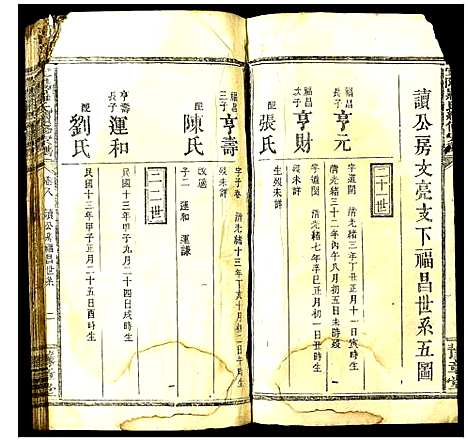 讀公房文亮支下福昌世系五圖
二十一世
亨元
字道開
清光緒三年丁丑正月十一日寅時生
清光緒三十二年丙午八月初五日未時歿
福昌次子
亨財
字道閏
清光緒七年辛巳正月初一日戌時生
歿未詳
配
張氏
生歿未詳
福昌三子
亨壽
清光緒十三年丁亥十月初二日午時生
歿未詳
配
陳氏
改適
子二 運和 運謙
二十二世
亨壽長子
運和
民國十三年甲子九月二十四日戌時生
配
劉氏
民國十三年甲子正月二十五日酉時生
卷八
讀公房福昌世系